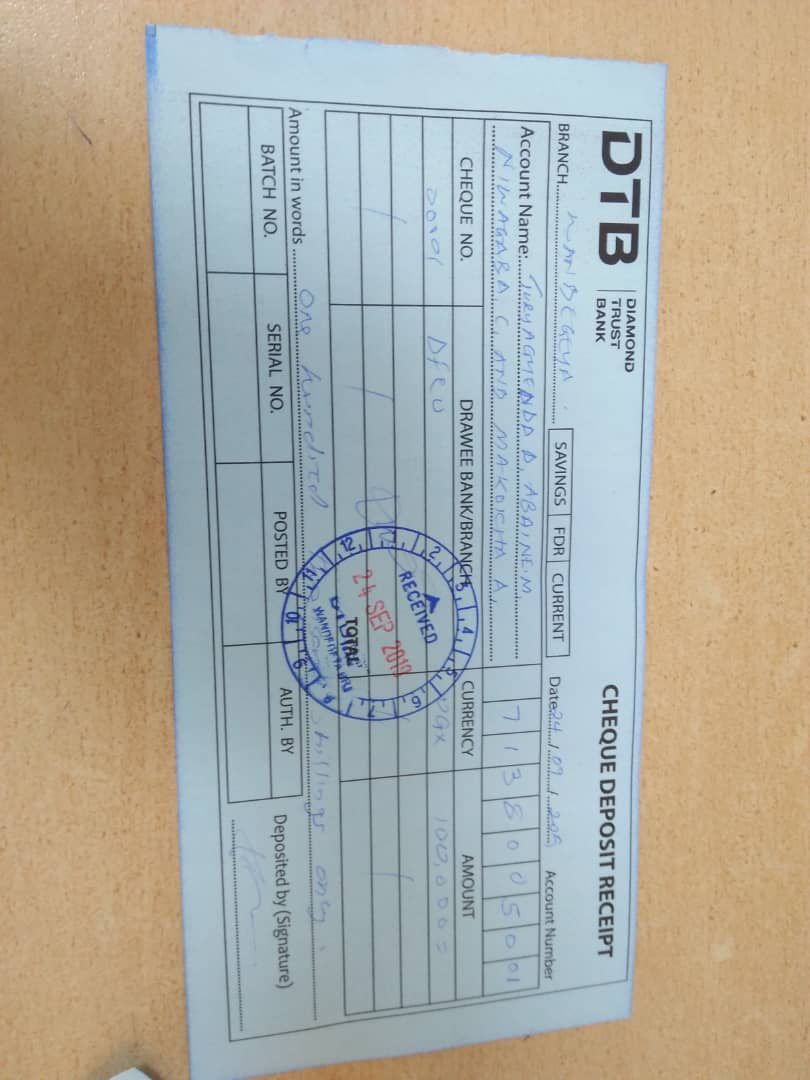 DTB DIAMOND
TRUST
BANK
CHEQUE DEPOSIT RECEIPT
BRANCH WANDEGEYA SAVINGS FDR CURRENT Date 24 / 09 / Account Number
Account Name: TURYAGYENDA D, ABAINE.M,
NIWAGABA C, AND MAKOKHA A, 7138005001
CHEQUE NO. DRAWEE BANK/BRANCH CURRENCY AMOUNT
DFCU UGX 100,000=
RECEIVED
24 SEP 2019
TOTAL
Amount in words One hundred shillings only.
BATCH NO. SERIAL NO. POSTED BY AUTH. BY Deposited by (Signature)
1 2 3 4 5 6 7 8 9 10 11 12